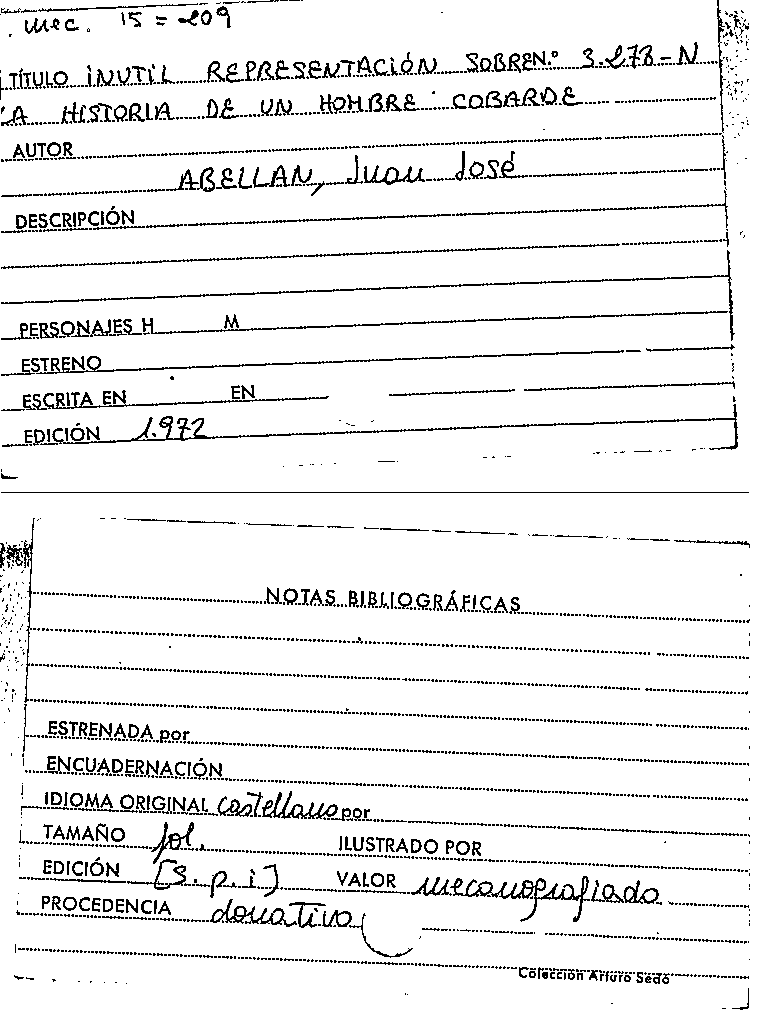 . mec. 15 = 209
TÍTULO INUTIL REPRESENTACIÓN SOBRE N.º 3.278-N
LA HISTORIA DE UN HOMBRE COBARDE
AUTOR
ABELLAN, Juan José
DESCRIPCIÓN
PERSONAJES H M
ESTRENO
ESCRITA EN EN
EDICIÓN 1.972
NOTAS BIBLIOGRÁFICAS
ESTRENADA por
ENCUADERNACIÓN
IDIOMA ORIGINAL Castellano por
TAMAÑO fol. ILUSTRADO POR
EDICIÓN [S.p.i] VALOR mecanografiado
PROCEDENCIA donativo
Colección Arturo Sedó